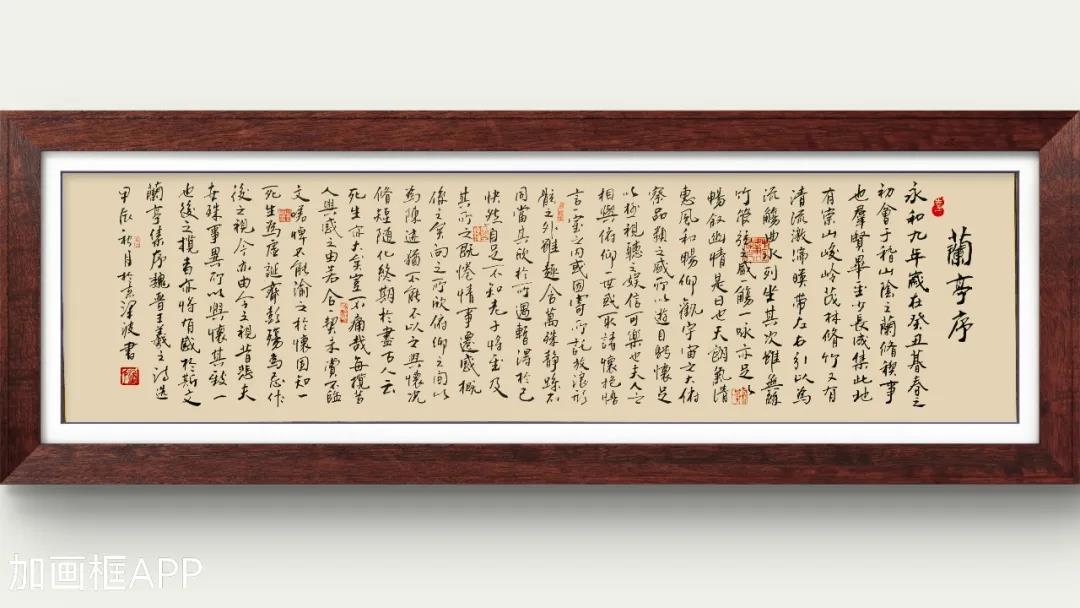 蘭亭序
永和九年歲在癸丑暮春之
初會于稽山陰之蘭脩稧事
也羣賢畢至少長咸集此地
有崇山峻岭茂林脩竹又有
清流激湍暎帶左右引以為
流觴曲水列坐其次雖無絲
竹管弦之盛觴一詠亦足以
暢敘幽情是日也天朗氣清
惠風和暢仰觀宇宙之大俯
察品類之盛所以遊目騁懷足
以極視聽之娛信可樂也夫人之
相與俯仰一世或取諸懷抱悟
言一室之内或因寄所託放浪形
骸之外雖趣舍萬殊静躁不
同當其欣於所遇暫得於己
快然自足不和老子將至及
其所之既惓情事遷感概
係之矣向之所欣俯仰之間以
為陳迹猶不能不以之興懷况
脩短隨化終期於盡古人云
死生亦大矣豈不痛哉每攬昔
人興感之由若合一契未嘗不臨
文嗟悼不能渝之於懷固知一
死生為虛誕齊彭殤為忘作
後之視今亦由今之視昔悲夫
世殊事異所以興懷其致一
也後之攬者亦將有感於斯文
蘭亭集序魏晋王羲之詩選
甲辰秋月於波書
加画框APP